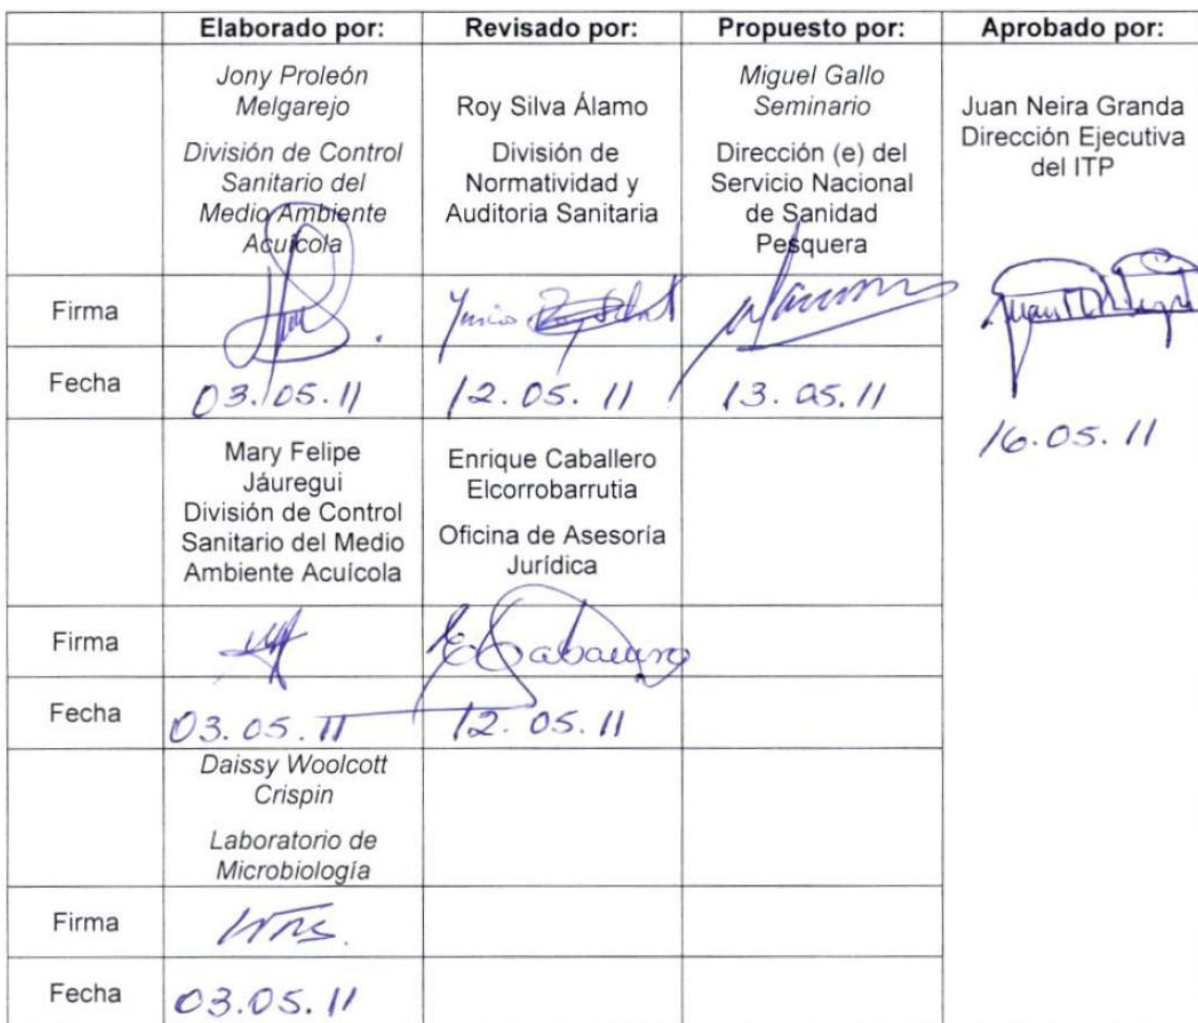 Elaborado por: Revisado por: Propuesto por: Aprobado por:
Jony Proleón
Melgarejo
División de Control
Sanitario del
Medio Ambiente
Acuícola
Roy Silva Álamo
División de
Normatividad y
Auditoria Sanitaria
Miguel Gallo
Seminario
Dirección (e) del
Servicio Nacional
de Sanidad
Pesquera
Juan Neira Granda
Dirección Ejecutiva
del ITP
Firma
Fecha 03.05.11 12.05.11 13.05.11
16.05.11
Mary Felipe
Jáuregui
División de Control
Sanitario del Medio
Ambiente Acuícola
Enrique Caballero
Elcorrobarrutia
Oficina de Asesoría
Jurídica
Firma
Fecha 03.05.11 12.05.11
Daissy Woolcott
Crispin
Laboratorio de
Microbiología
Firma
Fecha 03.05.11